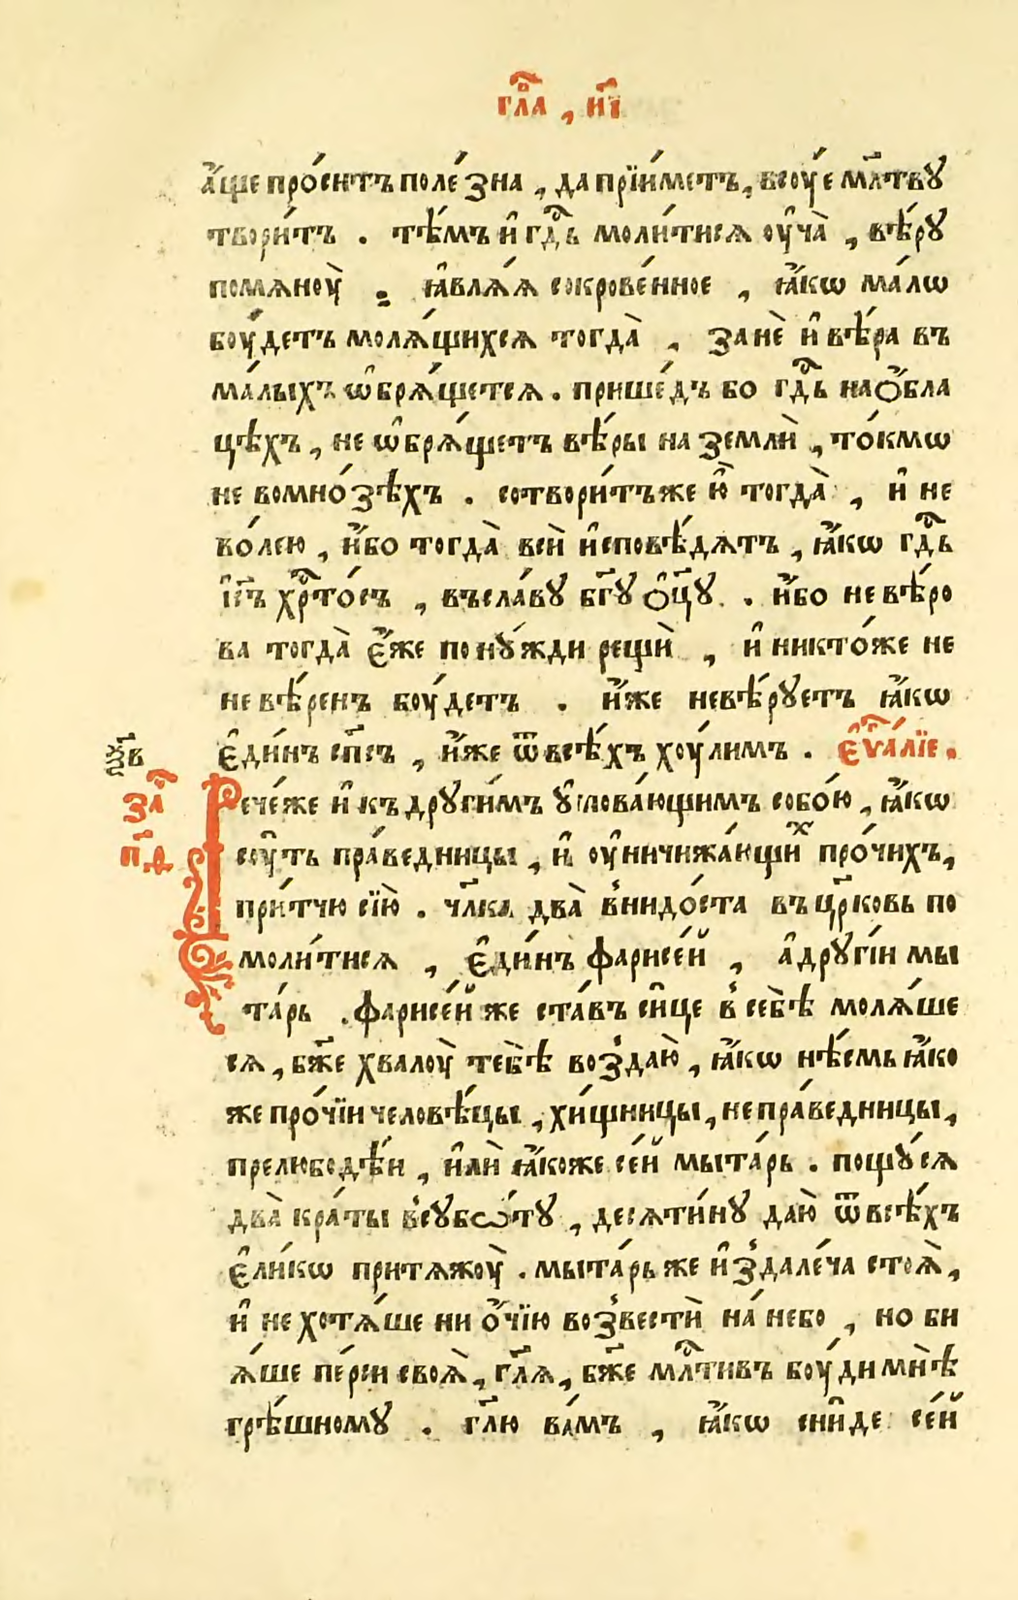 гл҃а , и҃і
а҆́ще про́ситъ поле́зна , да прїи́метъ , всоу́е мл҃тву
твори́тъ . тѣ́мъ и҆ гд҇ь моли́тисѧ оу҆ча̀ , вѣ́ру
помѧноу̀ . ꙗ҆влѧ́ѧ сокрове́нное , ꙗ҆́кѡ ма́лѡ
боу́детъ молѧ́щихсѧ тогда̀ , занѐ и҆ вѣ́ра въ
ма́лыхъ ѡ҆брѧ́щетсѧ . прише́дъ бо гд҇ь на ѻ҆́бла
цѣхъ , не ѡ҆брѧ́щетъ вѣ́ры на землѝ , то́кмѡ
не вомно́зѣхъ . сотвори́тъже ю҆̀ тогда̀ , и҆ не
во́лею , и҆́бо тогда̀ всѝ и҆сповѣ́дѧтъ , ꙗ҆́кѡ гд҇ь
і҆с҃ъ хр҇то́съ , въсла́ву бг҃у ѻ҆ц҃у . и҆́бо не вѣ́ро
ва тогда̀ є҆́же по ну́жди рещѝ , и҆ никто́же не
не вѣ́ренъ боу́детъ . и҆́же невѣ́руетъ ꙗ҆́кѡ
є҆ди́нъ сп҃съ , и҆́же ѿ всѣ́хъ хоу́лимъ . є҆ѵ҇а́лїе .
ѯ҃в
за҇
п҃ѳ
Рече́же и҆ къ други̑мъ у҆пова́ющимъ собо́ю , ꙗ҆́кѡ
соу́ть пра́ведницы , и҆ оу҆ничижа́ющиⷯ про́чихъ ,
при́тчю сїю̀ . чл҃ка два̀ вни́до́ста въ цр҃ковь по
моли́тисѧ , є҆ди́нъ фарисе́й , а҆ другі́и мы
та́рь . фарисе́й же ста́въ си́це в себѣ̀ молѧ́ше
сѧ , бж҃е хвалоу̀ тебѣ̀ воздаю̀ , ꙗ҆́кѡ нѣ́смь ꙗ҆́ко
же про́чїи человѣ́цы , хи́щницы , непра́ведницы ,
прелюбодѣ́и , и҆лѝ ꙗ҆́коже се́й мыта́рь . пощу́сѧ
два̀ кра́ты всуббѡ́ту , десѧти́ну даю̀ ѿ всѣ́хъ
є҆ли́кѡ притѧжоу̀ . мыта́рь же и҆здале́ча стоѧ̀ ,
и҆ не хотѧ́ше ни ѻ҆́чїю возвестѝ на́ небо , но би
ѧ́ше пе́рси своѧ̀ , гл҃ѧ , бж҃е мл҇тивъ боу́ди мнѣ̀
грѣ́шному . гл҃ю ва́мъ , ꙗ҆́кѡ сни́де се́й